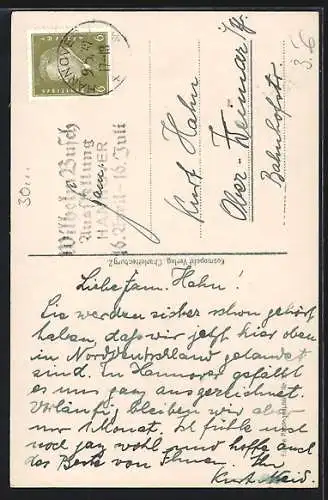 HANNOVER
Wilhelm Busch
Ausstellung
HANNOVER
16. Juli
Familie
Kurt Hahn
Ober-Weimar
Bahnhofstr.
Kosmopolit Verlag, Charlottenburg 2
Liebe Fam. Hahn!
Sie werden sicher schon gehört
haben, dass wir jetzt hier oben
in Nordwestdeutschland gelandet
sind. In Hannover gefällt
es uns ganz ausgezeichnet.
Vorläufig bleiben wir aber
nur 1 Monat. Ich fühle mich
noch ganz wohl und hoffe auch
das Beste von Ihnen. Ihr
Kurt